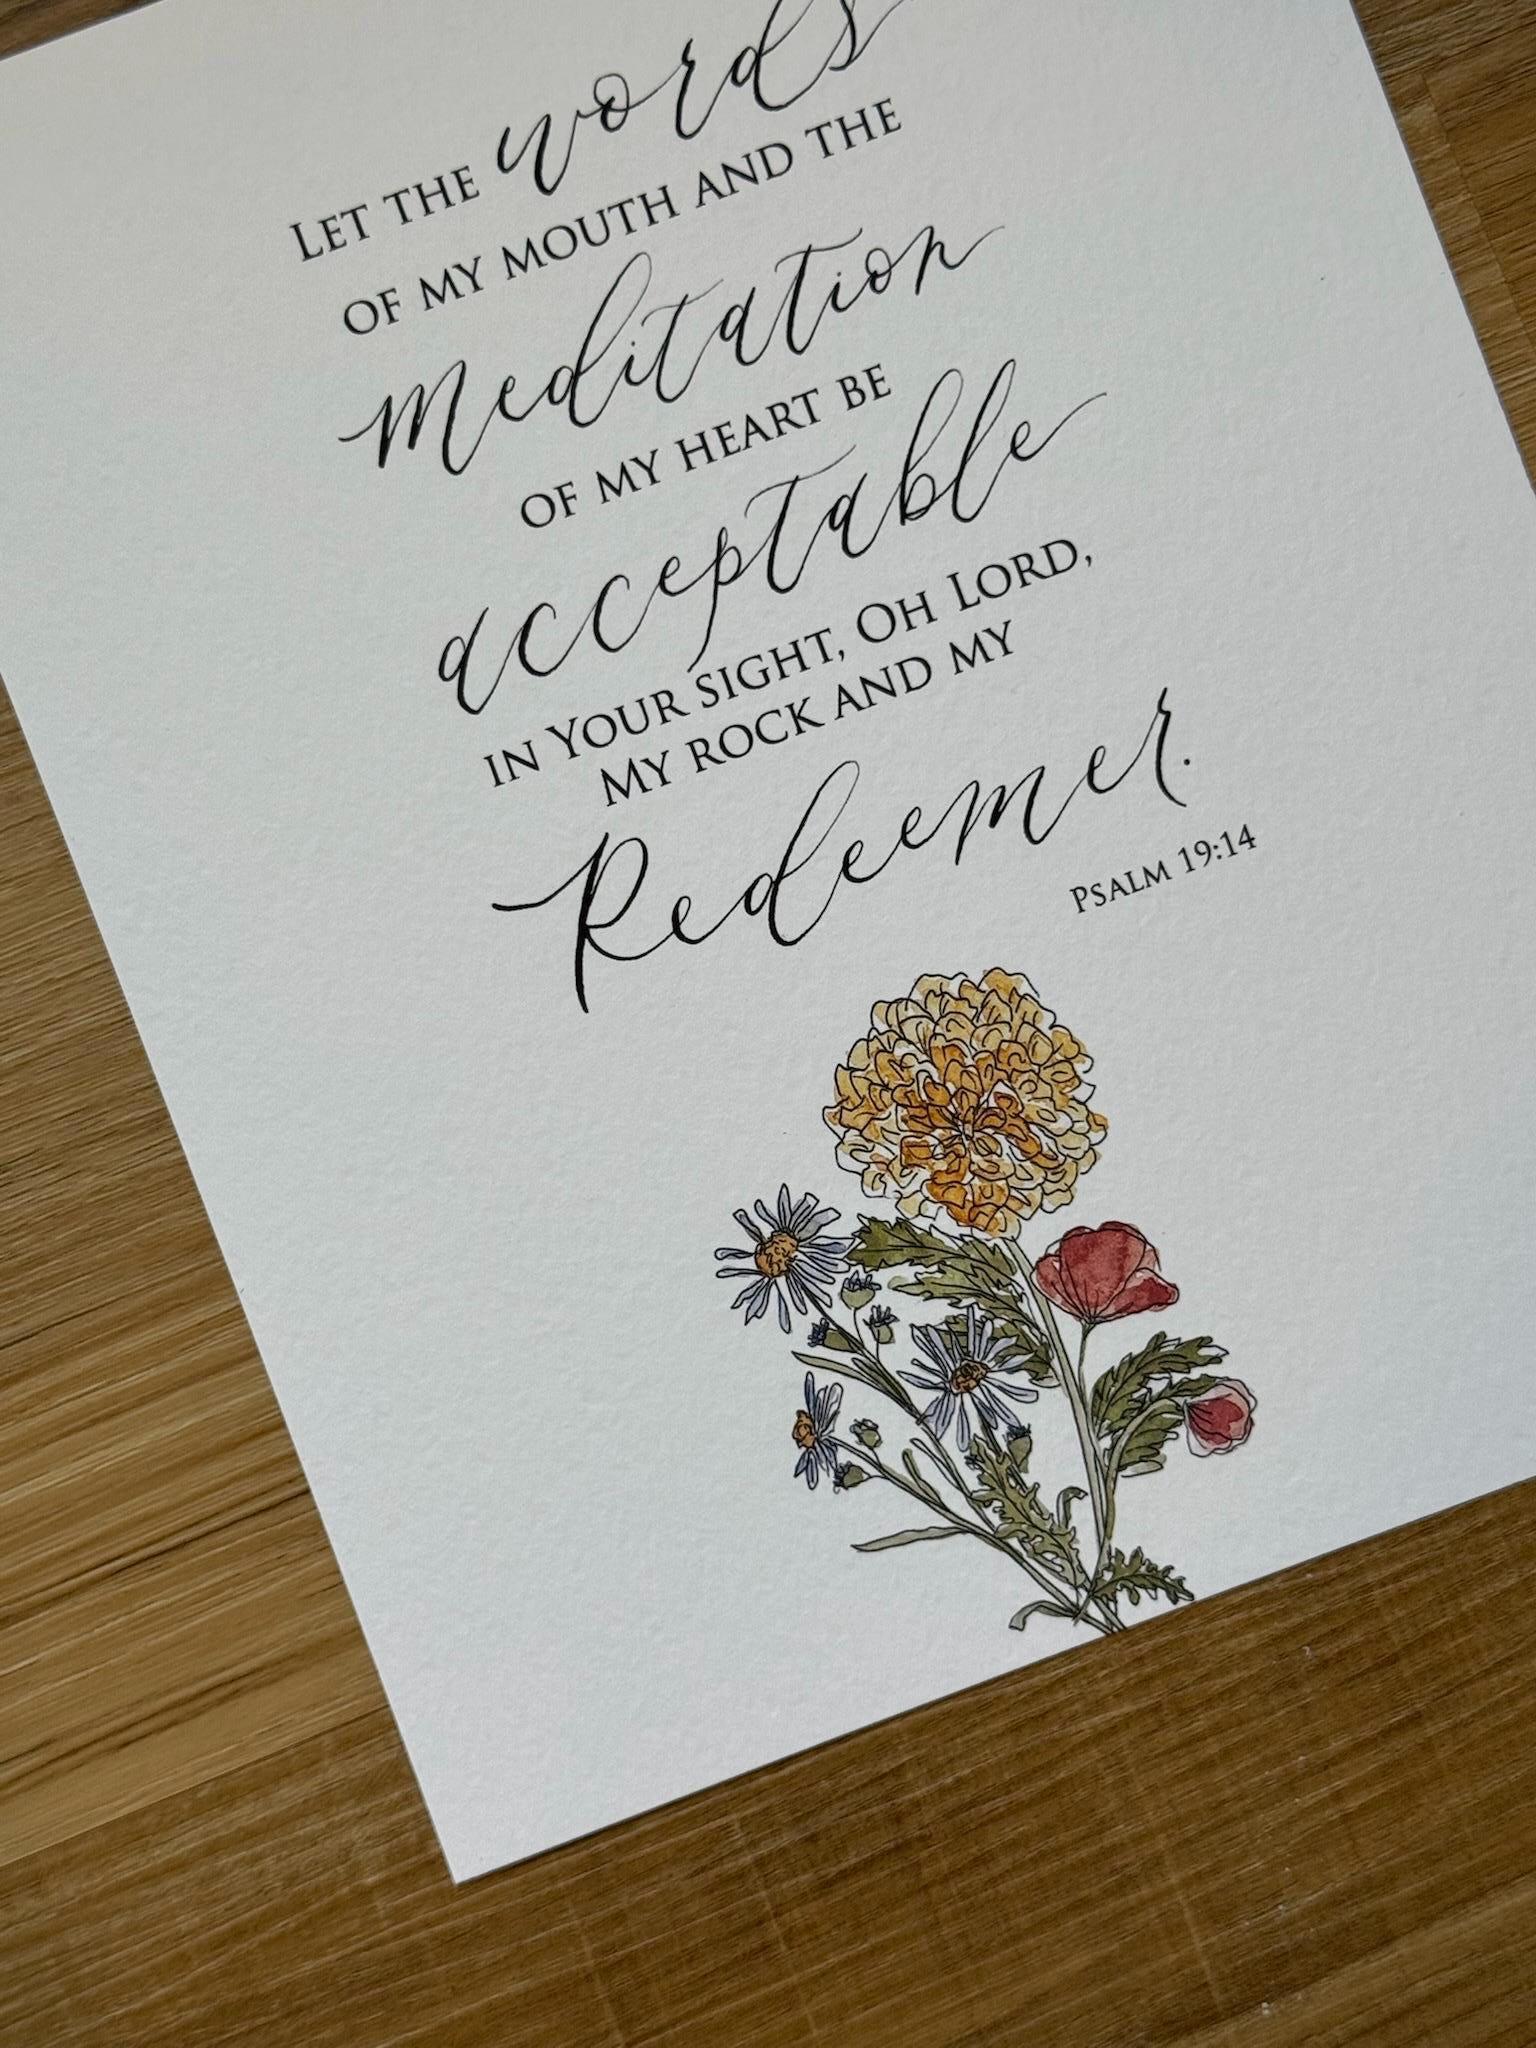 LET THE words
OF MY MOUTH AND THE
meditation
OF MY HEART BE
acceptable
IN YOUR SIGHT, OH LORD,
MY ROCK AND MY
Redeemer.
PSALM 19:14